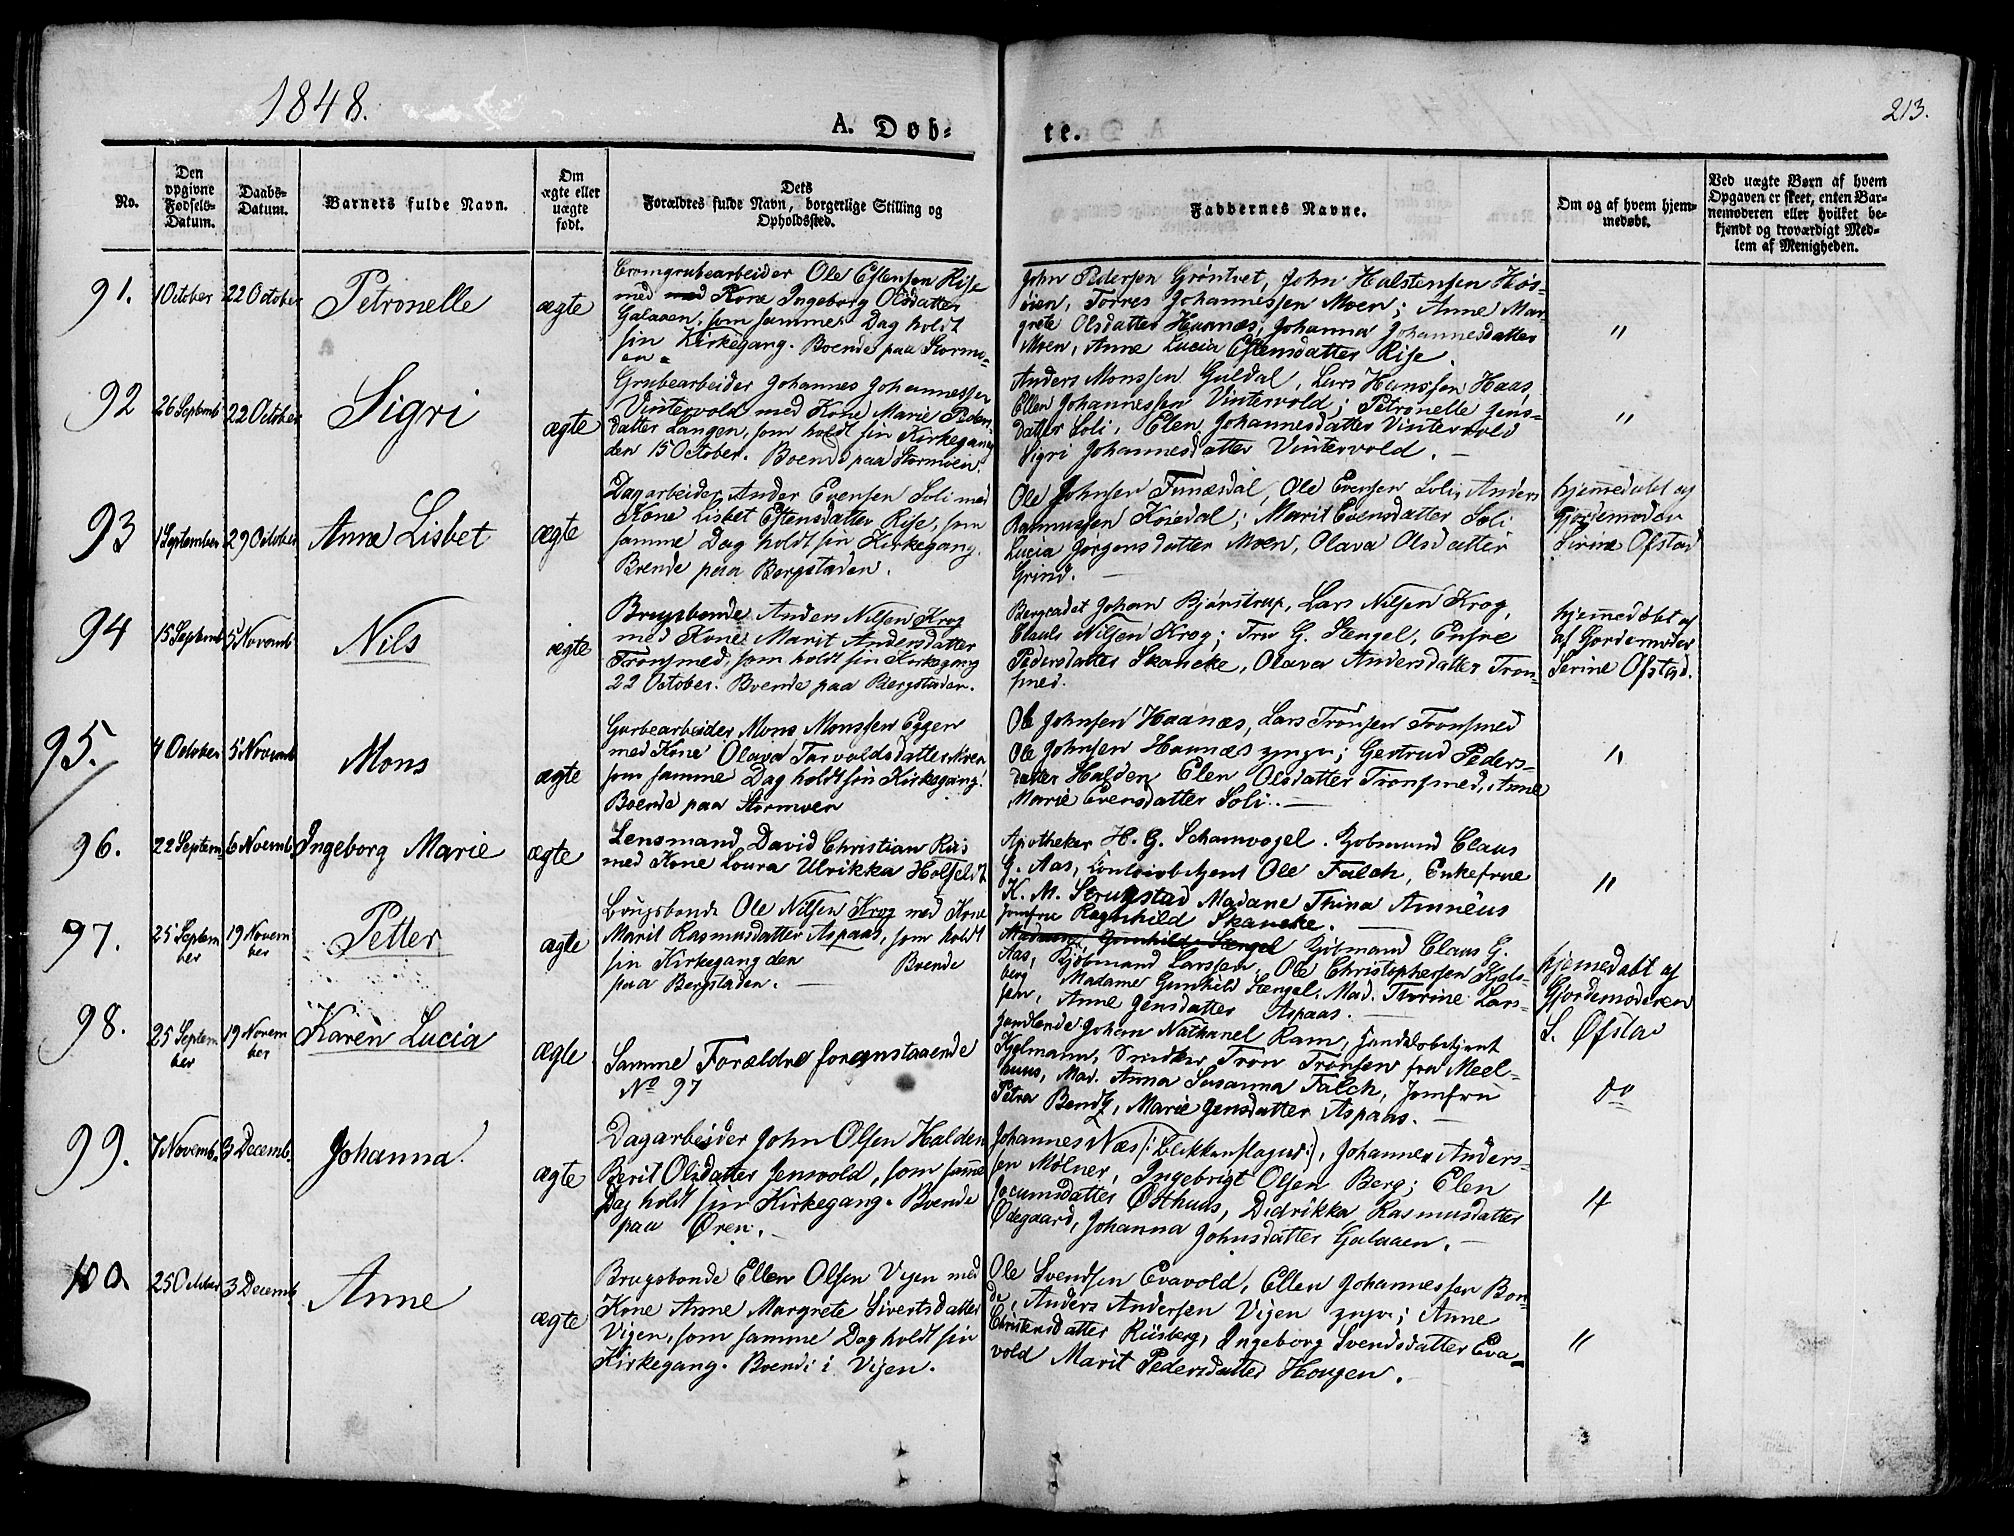 1848.
A. Døb-
te.
213.
No.
Den opgivne Fødsels-Datum.
Daabs-Datum.
Barnets fulde Navn.
Om ægte eller uægte født.
Dets
Forældres fulde Navn, borgerlige Stilling og
Opholdssted.
Faddernes Navne.
Om og af hvem hjem-
medøbt.
Ved uægte Børn af hvem
Opgaven er skeet, enten Bar-
nemoderen eller hvilket be-
kjendt og troværdigt Med-
lem af Menigheden.
91.
1 October
22 October
Petronelle
ægte
Cromgrubearbeider Ole Estensen Rise
med med Kone Ingeborg Olsdatter
Galaaen, som samme Dag holdt
sin Kirkegang. Boende paa Stormo-
en.
John Pedersen Grøntvet, John Halstensen Høs-
øien, Torres Johannessen Moen; Anne Mar-
grete Olsdatter Haanæs, Johanna Johannesdatter
Moen, Anne Lucia Estensdatter Rise.
"
92
26 Septemb
22 October
Sigri
ægte
Grubearbeider Johannes Johannessen
Vintervold med Kone Marie Peders-
datter Langen, som holdt sin Kirkegang
den 15 October. Boende paa Stormoen.
Anders Monssen Guldal, Lars Hanssen Haas,
Ellen Johannessen Vintervold; Petronelle Jens-
datter Soli, Elen Johannesdatter Vintervold
Sigri Johannesdatter Vintervold.
"
93
1 September
29 October
Anne Lisbet
ægte
Dagarbeider Ander Evensen Soli med
Kone Lisbet Estensdatter Rise, som
samme Dag holdt sin Kirkegang.
Boende paa Bergstaden.
Ole Johnsen Funæsdal, Ole Evensen Soli, Anders
Rasmussen Koiedal; Marit Evensdatter Soli
Lucia Jørgensdatter Moen, Olava Olsdatter
Grind.
hjemmedøbt af
Gjordemoder
Sirine Ofstad
94
15 Septemb
5 Novemb
Nils
ægte
Brugsbonde Anders Nilsen Krog
med Kone Marit Andersdatter
Tronsmed, som holdt sin Kirkegang
22 October. Boende paa Bergstaden.
Bergcadet Johan Bjønstrup, Lars Nilsen Krog,
Clauls Nilsen Krog; Fru G. Stengel, Enfre
Pedersdatter Skancke, Olava Andersdatter Tron-
smed.
hjemmedøbt af
af Gjordemoder
Serine Ofstad.
95.
4 October
5 Novemb
Mons
ægte
Gurbearbeider Mons Monssen Eggen
med Kone Olava Torvoldsdatter Moen
som samme Dag holdt sin Kirkegang.
Boende paa Stormoen
Ole Johnsen Haanæs, Lars Tronsen Tronsmed
Ole Johnsen Haanæs yngr; Gertrud Peders-
datter Halden Elen Olsdatter Tronsmed, Anne
Marie Evensdatter Soli.
"
96.
22 Septem
6 Novemb.
Ingeborg Marie
ægte
Lensmand David Christian Riis
med Kone Loura Ulrikka Holfeldt
Apotheker H. G. Schamvogel. Kjøbmand Claus
G. Aas, Contoirbetjent Ole Falch, Enkefrue
K. M. Strugstad Madane Thina Amnéus
Jomfru Ragnhild Skancke.
"
97.
25 Septem
ber
19 Novem
ber
Petter
ægte
Brugsbonde Ole Nilsen Krog med Kone
Marit Rasmusdatter Aspaas, som holdt
sin Kirkegang den Boende
paa Bergstaden.
Madame Gunhild Stengel Kjøbmand Claus G.
Aas, Kjøbmand Larssen, Ole Christophersen Kjels-
berg Madame Gunhild Stengel, Mad. Thrine Lars-
sen, Anne Jensdatter Aspaas.
hjemedøbt af
Gjordemoderen
S. Øfsta
98.
25 Septem
ber
19 Novem
ber
Karen Lucia
ægte
Samme Forældre foranstaaende
No 97
Handlende Johan Nathanel Ram, Handelsbetjent
Kjelmann, Smeden Tron Tronsen fra Meel-
huus, Mad. Anna Susanna Falch, Jomfru
Petra Bendz, Marie Jensdatter Aspaas.
do
99.
7 Novemb.
3 Decemb.
Johanna.
ægte
Dagarbeider John Olsen Halden
Berit Olsdatter Jensvold, som samme
Dag holdt sin Kirkegang. Boende
paa Øren.
Johannes Næs /: Blikkenslager :/, Johannes Anders-
sen Mølner, Ingebrigt Olsen Berg; Elen
Jocumsdatter Osthuus, Didrikka Rasmusdatter
Ødegaard, Johanna Johnsdatter Galaaen.
"
100.
25 October
3 Decemb
Anne
ægte
Brugsbonde Ellen Olsen Vijen med
Kone Anne Margrete Sivertsdatter
Vijen, som samme Dag holdt sin
Kirkegang. Boende i Vijen.
Ole Svendsen Evavold, Ellen Johannessen Bon-
de, Anders Andersen Vijen yngr; Anne
Christensdatter Riisberg, Ingeborg Svendsdatter Eva-
vold Marit Pedersdatter Hougen.
"